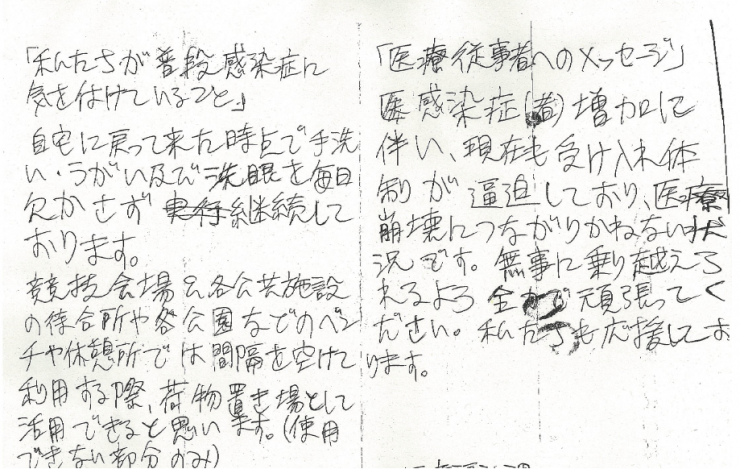 「私たちが普段感染症に
気を付けていること」
自宅に戻って来た時点で手洗
い・うがい及び洗眼を毎日
欠かさず継続して
おります。
競技会場や各公共施設
の待合所や各公園などのベン
チや休憩所では間隔を空けて
利用する際、荷物置き場として
活用できると思います。(使用
できない部分のみ)
「医療従事者へのメッセージ」
感染症(者)増加に
伴い、現在も受け入れ体
制が逼迫しており、医療
崩壊につながりかねない状
況です。無事に乗り越えら
れるよう全力で頑張ってく
ださい。私たちも応援してお
ります。